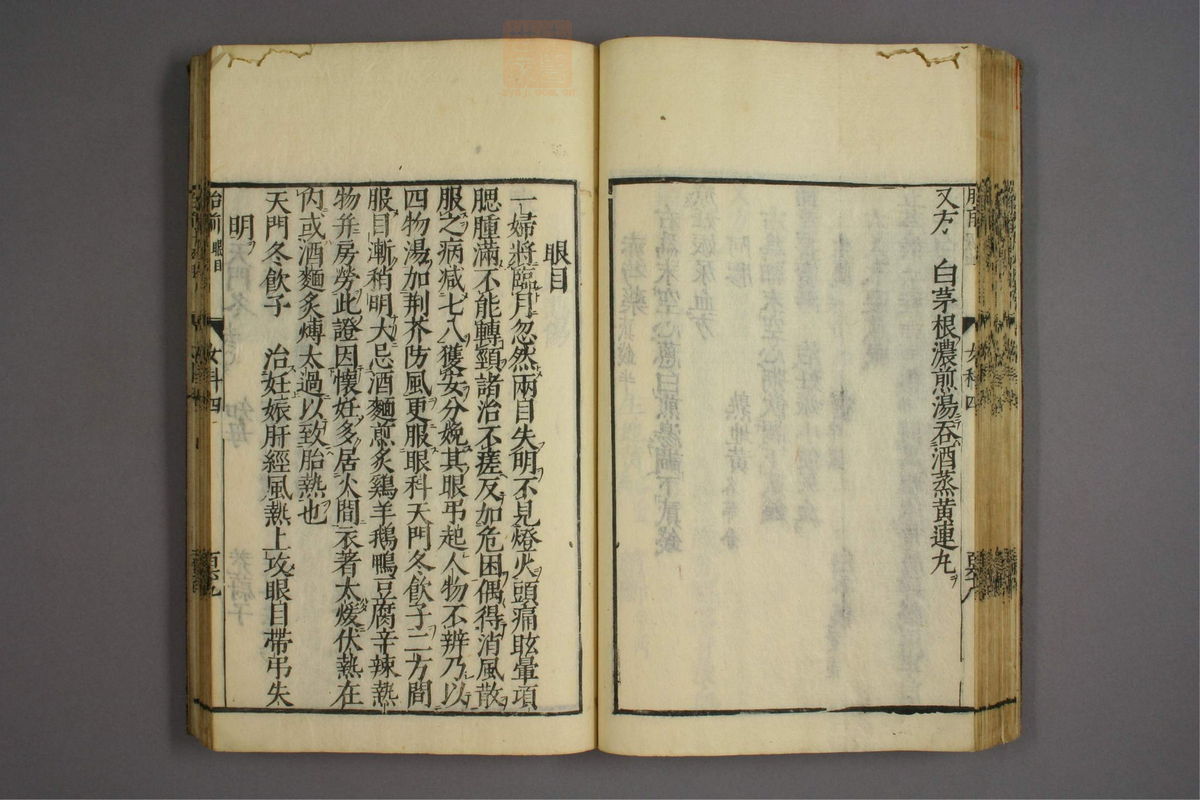 又方 白茅根濃煎湯吞酒蒸黄連丸
眼目
一婦將臨月忽然兩目失明不見燈火頭痛眩暈項
腮腫滿不能轉頸諸治不瘥反加危困偶得消風散
服之病减七八獲安分娩其眼弔起人物不辨乃以
四物湯加荆芥防風更服眼科天門冬飲子二方間
服目漸稍明大忌酒麵煎炙鷄羊鵝鴨豆腐辛辣熱
物并房勞此證因懷妊多居火間衣著太煖伏熱在
内或酒麵炙煿太過以致胎熱也
天門冬飲子 治妊娠肝經風熱上攻眼目帶弔失
明
胎前 眼目 女科四
胎前 女科四